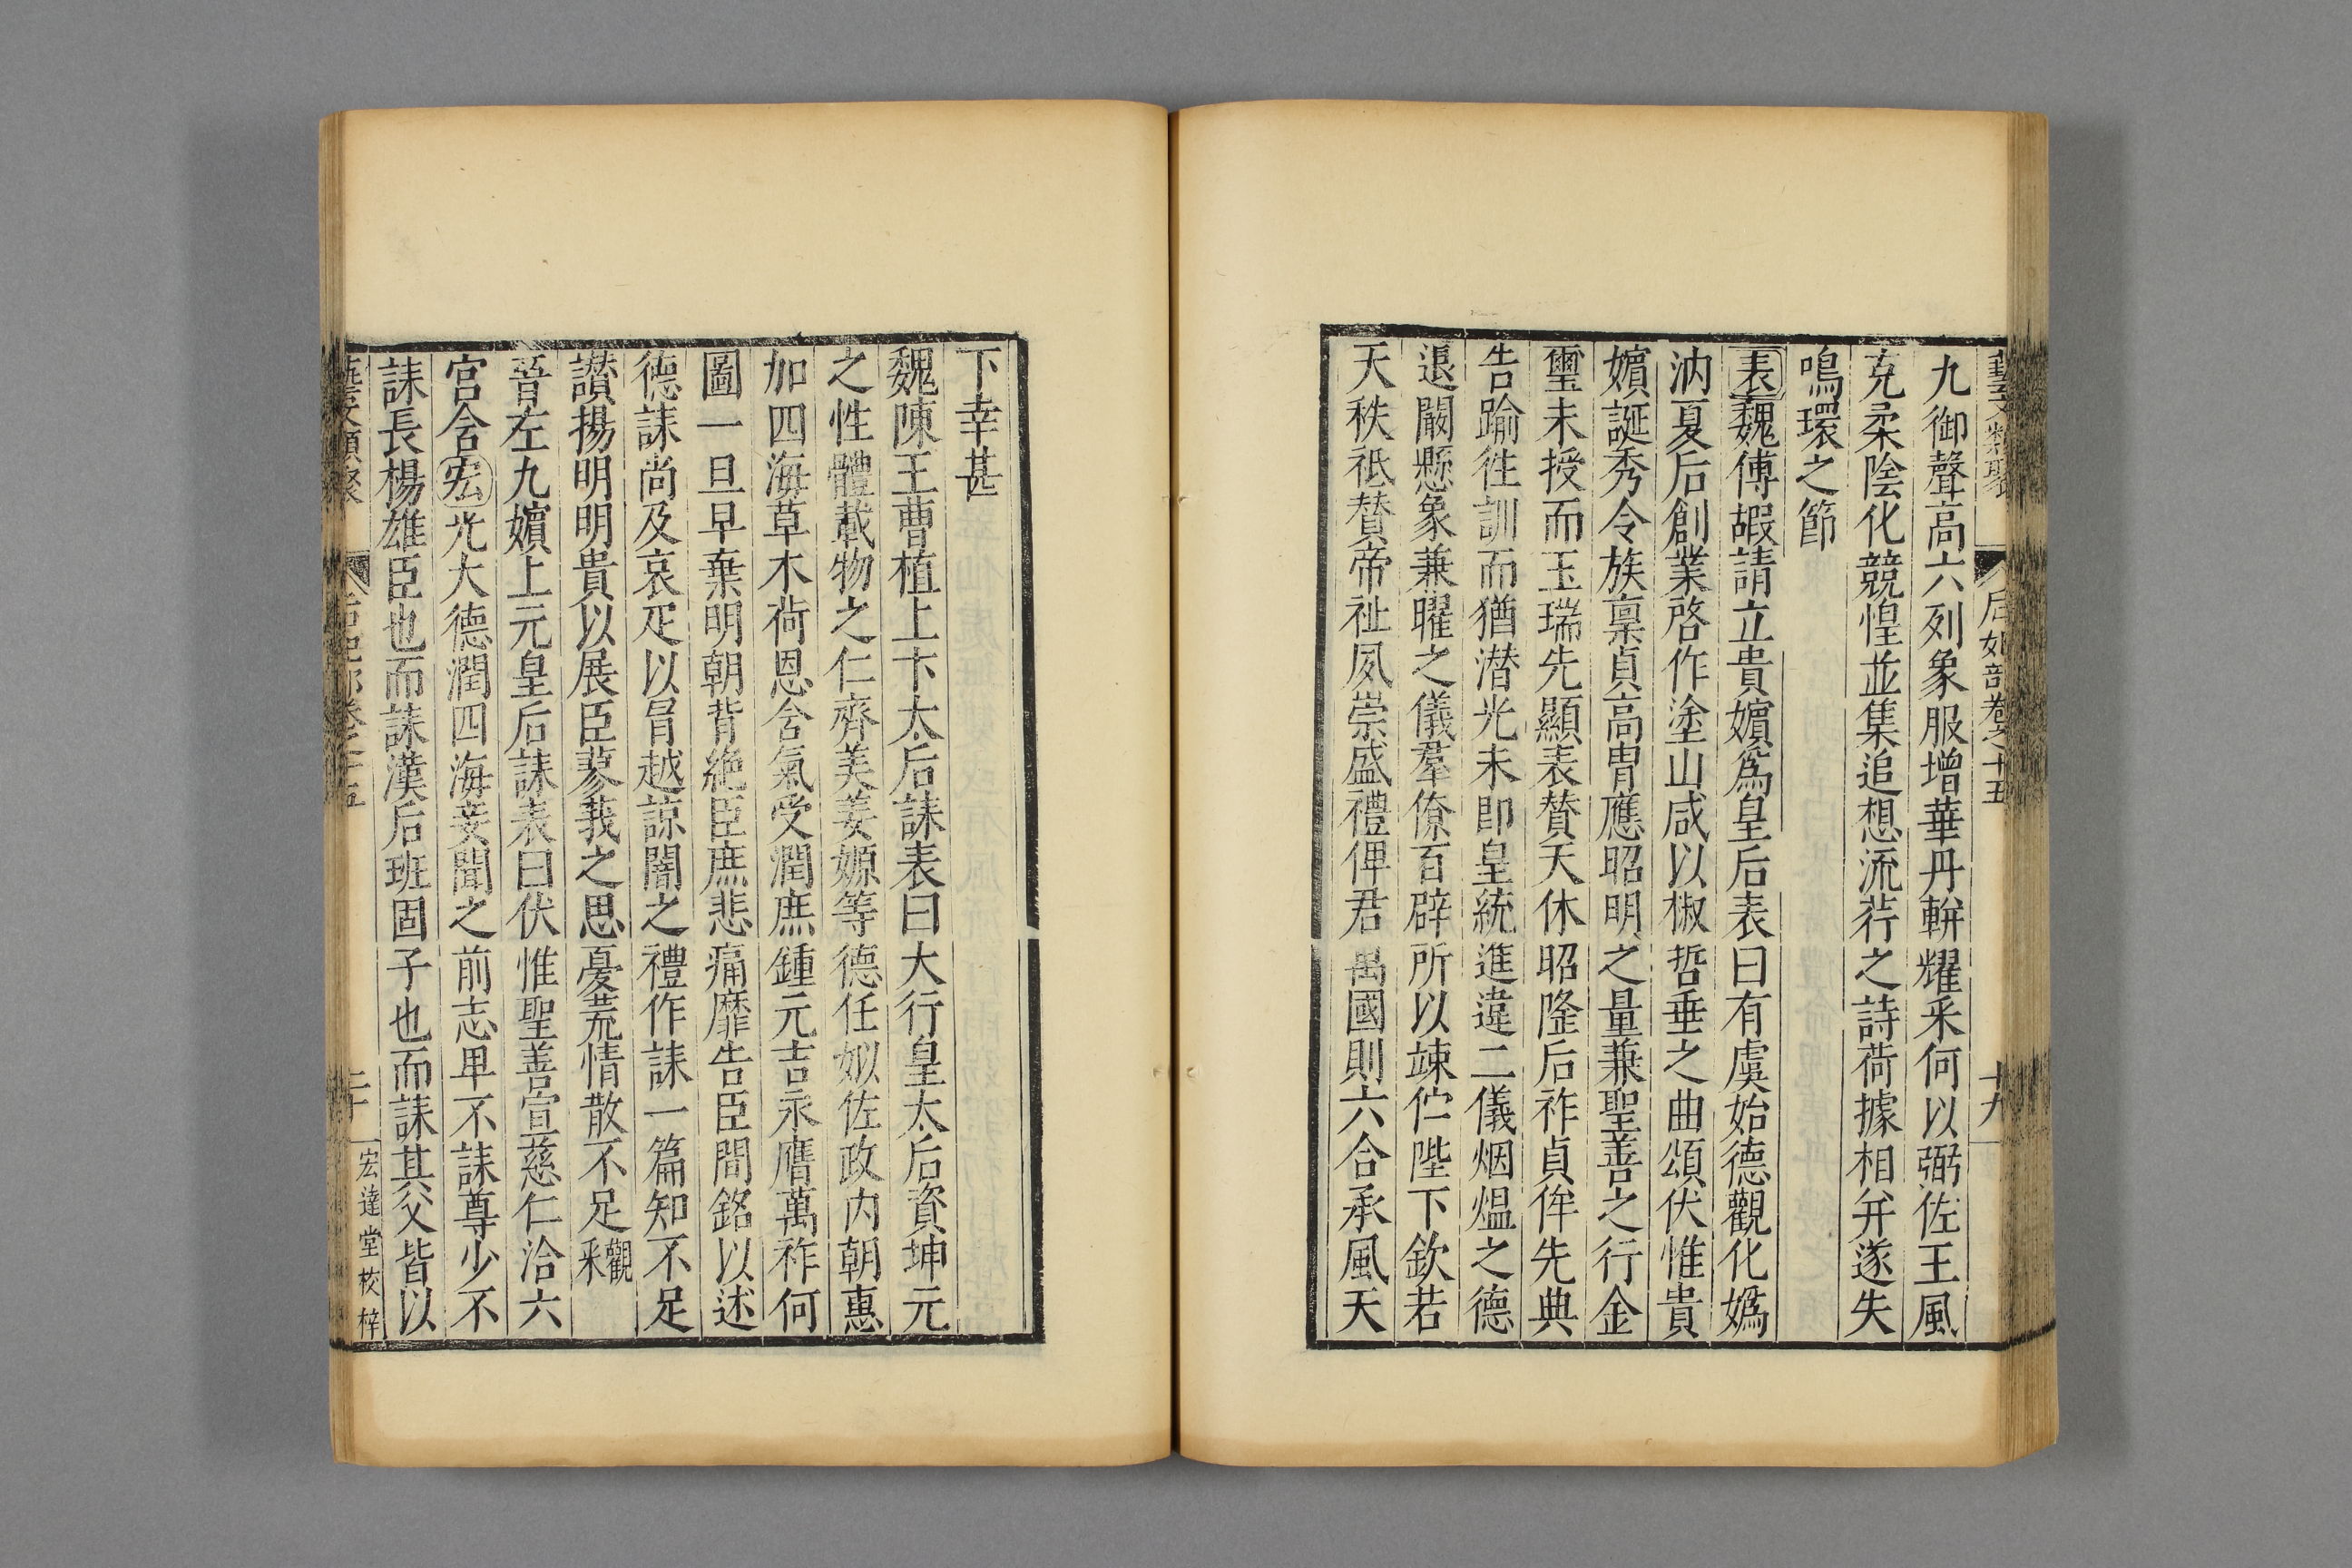 藝文類聚 后妃部卷之十五 十九
九御聲高六列象服增華丹軿耀采何以弼佐王風
克柔陰化競惶並集追想流荇之詩荷據相弁遂失
鳴環之節
表魏傅嘏請立貴嬪爲皇后表曰有虞始德觀化嬀
汭夏后創業啓作塗山咸以椒哲垂之曲頌伏惟貴
嬪誕秀令族稟貞高胄應昭明之量兼聖善之行金
璽未授而玉瑞先顯表賛天休昭陞后祚貞侔先典
告踰徃訓而猶潜光未卽皇統進違二儀烟熅之德
退闕懸象兼曜之儀羣僚百辟所以竦伫陛下欽若
天秩祗賛帝祉夙崇盛禮俾君萬國則六合承風天
下幸甚
魏陳王曹植上卞太后誄表曰大行皇太后資坤元
之性體載物之仁齊美姜嫄等德任姒佐政内朝惠
加四海草木荷恩含氣受潤庶鍾元吉永膺萬祚何
圖一旦早棄明朝背絶臣庶悲痛靡告臣聞銘以述
德誄尚及哀是以冐越諒闇之禮作誄一篇知不足
讃揚明明貴以展臣蓼莪之思憂荒情散不足觀采
晉左九嬪上元皇后誄表曰伏惟聖善宣慈仁洽六
宮含宏光大德潤四海妾聞之前志卑不誄尊少不
誄長楊雄臣也而誄漢后班固子也而誄其父皆以
藝文類聚 后妃部卷之十五 二十 宏達堂校梓